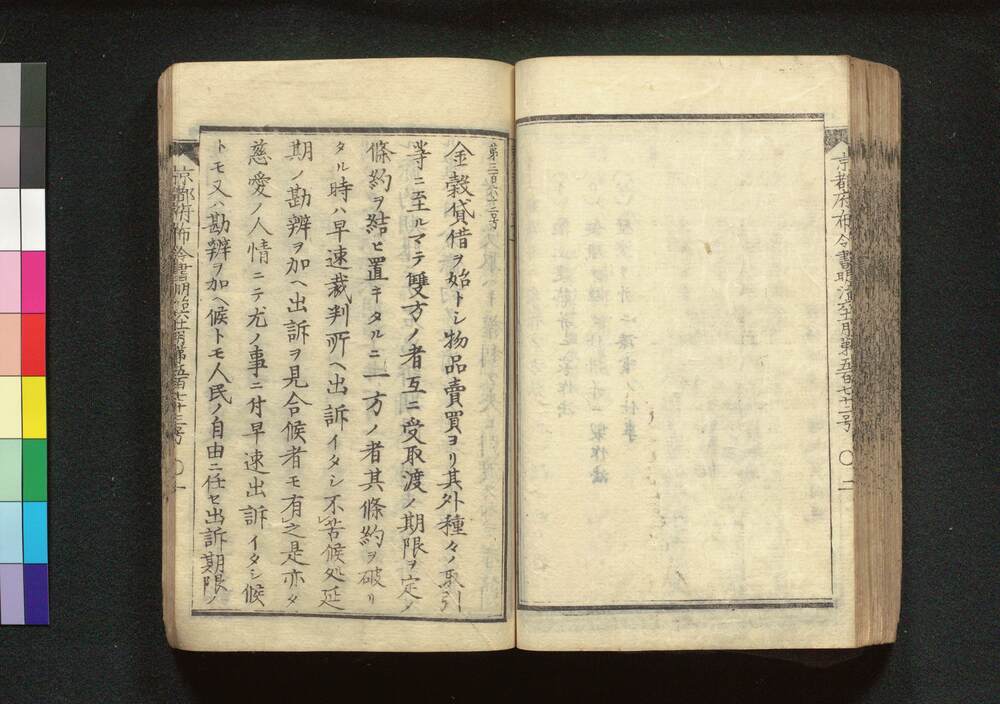 京都府布令書明治六年十一月第五百七十二号 〇 二
第三百六十二号
金穀貸借ヲ始トシ物品賣買ヨリ其外種々ノ取引
等ニ至ルマテ雙方ノ者互ニ受取渡ノ期限ヲ定メ
條約ヲ結ヒ置キタルニ一方ノ者其條約ヲ破リ
タル時ハ早速裁判所ヘ出訴イタシ不苦候処延
期ノ勘辨ヲ加ヘ出訴ヲ見合候者モ有之是亦タ
慈愛ノ人情ニテ尤ノ事ニ付早速出訴イタシ候
トモ又ハ勘辨ヲ加ヘ候トモ人民ノ自由ニ任セ出訴期限ノ
京都府布令書明治六年十一月第五百七十三号 〇 一